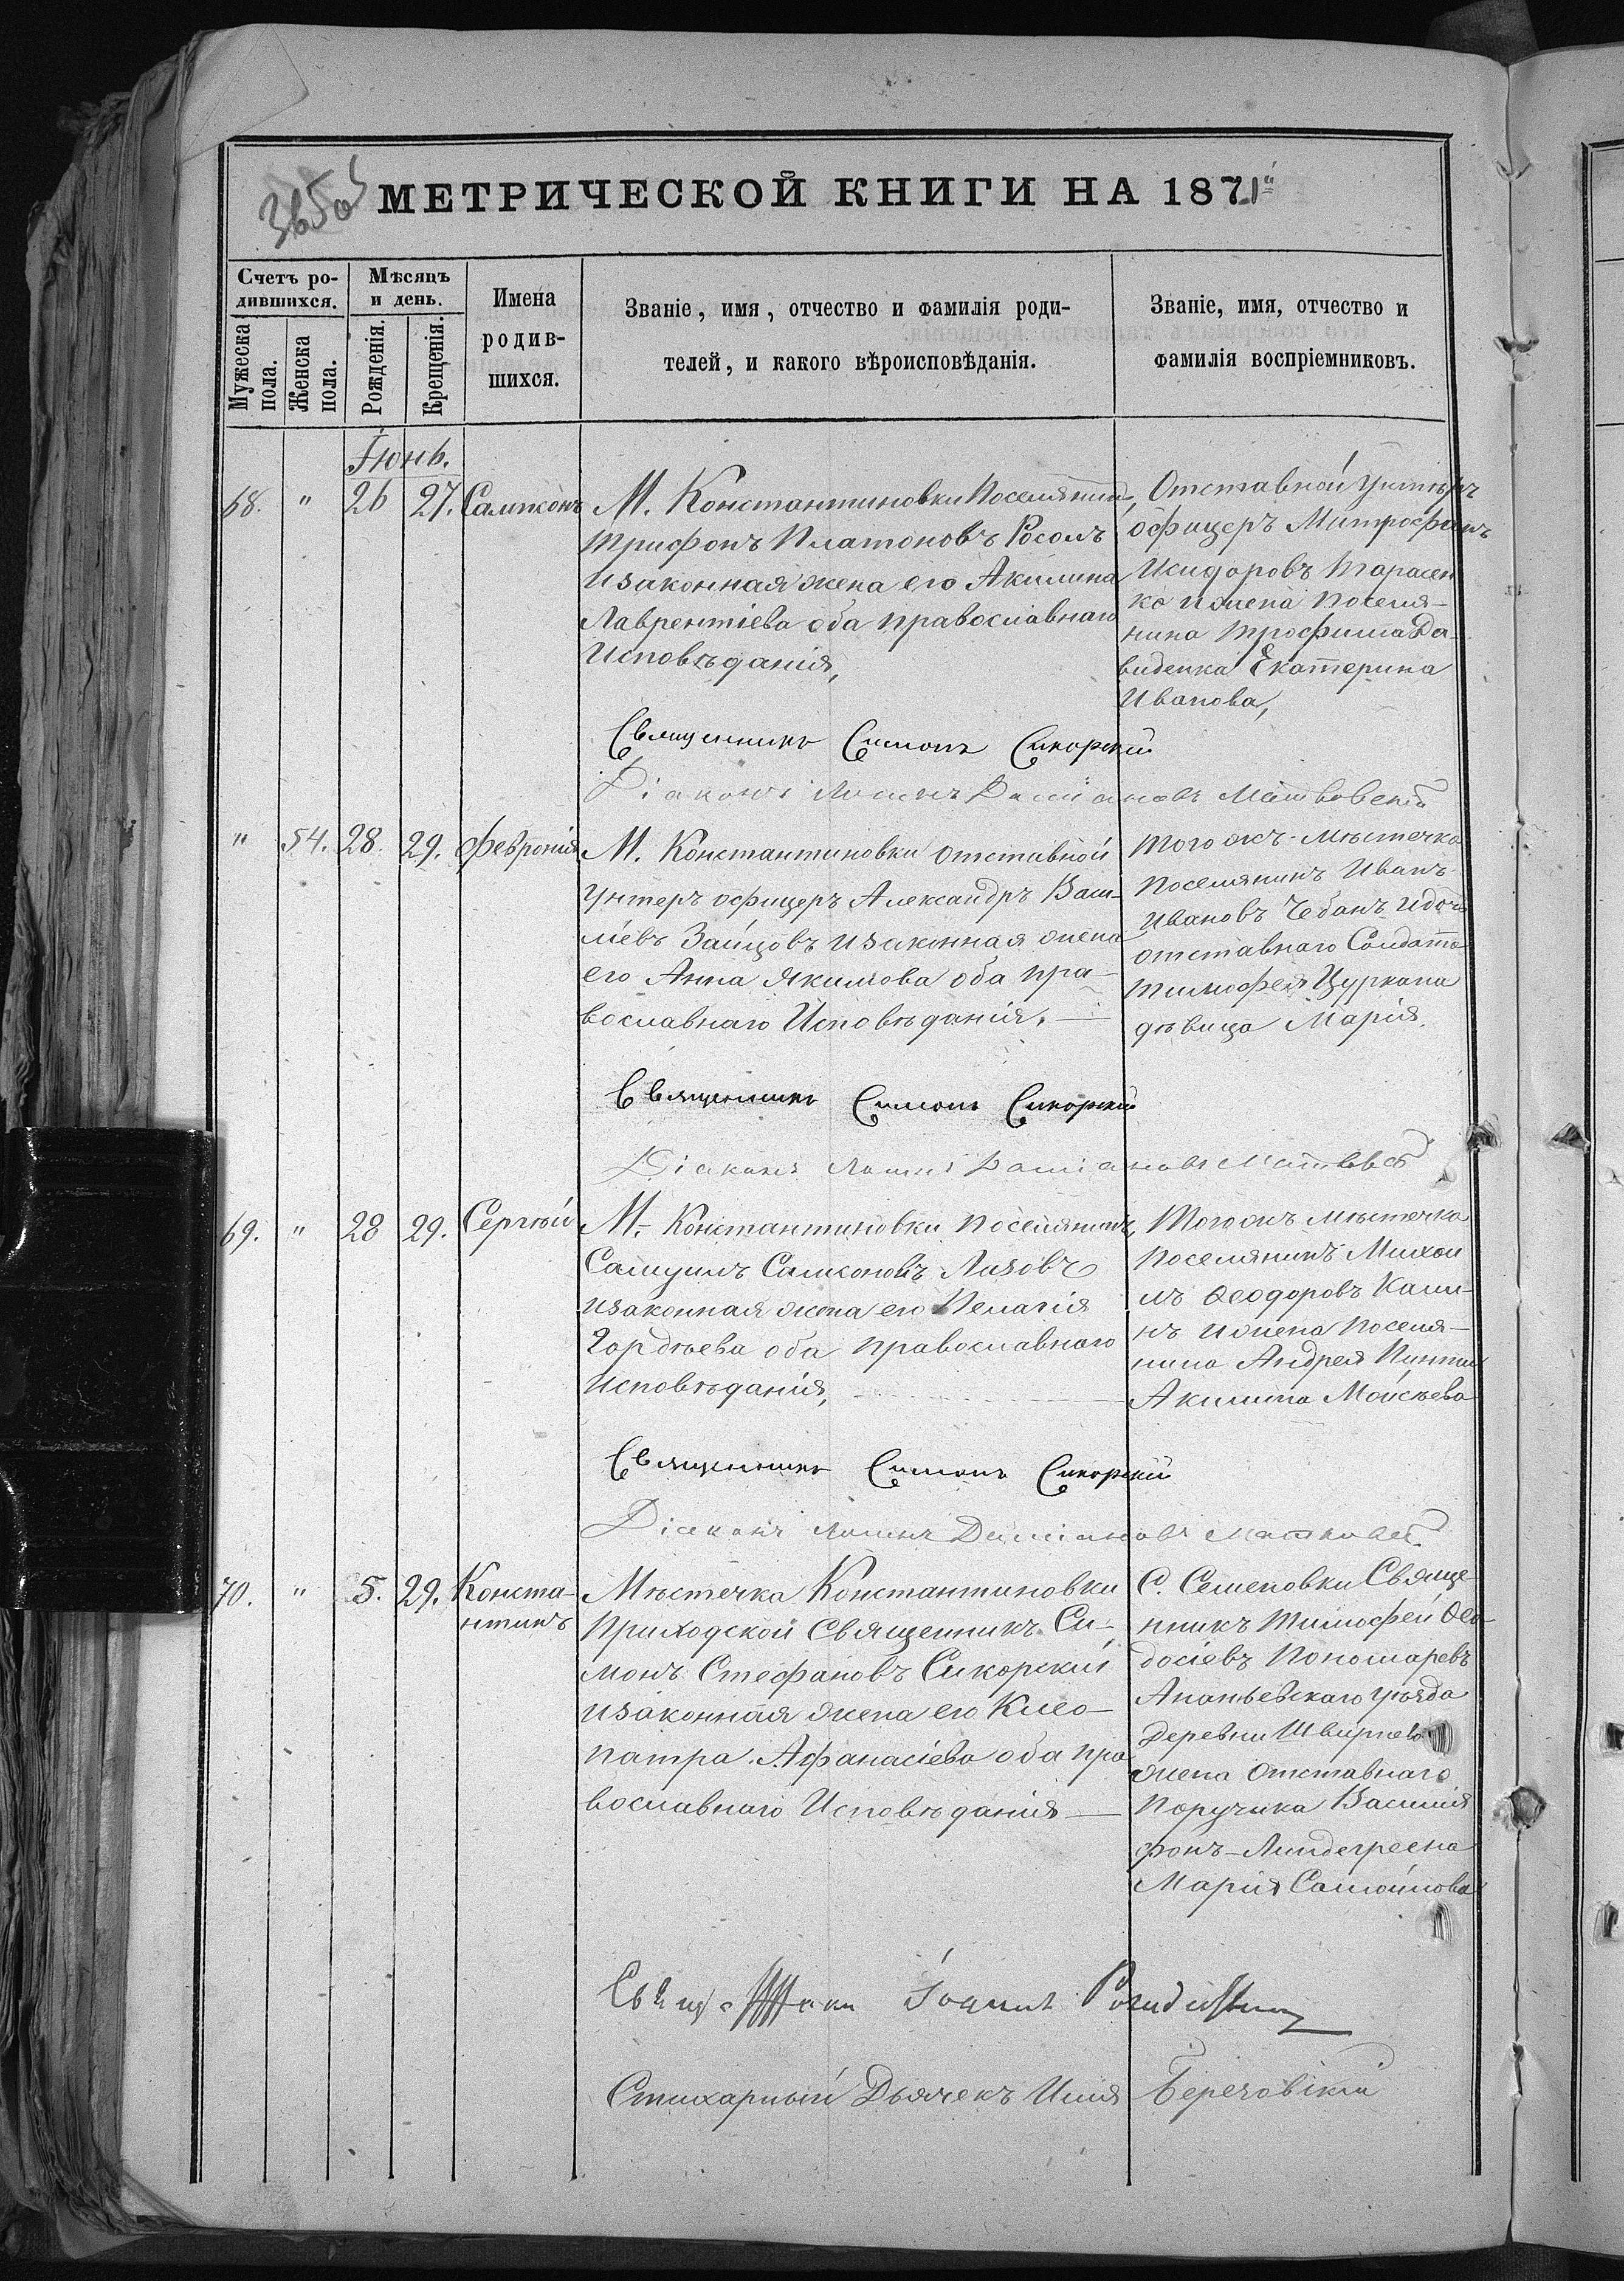 МЕТРИЧЕСКОЙ КНИГИ НА 1871й
Счетъ ро-
дившихся.
Мѣсяцъ
и день.
Мужеска
пола.
Женска
пола.
Рожденія.
Крещенія.
Имена
родив-
шихся.
Званіе, имя, отчество и фамилія роди-
телей, и какого вѣроисповѣданія.
Званіе, имя, отчество и
фамилія воспріемниковъ.
Іюнь.
68. " 26 27. Сампсонъ
М. Константиновки Поселянинъ,
Трифонъ Платоновъ Росолъ
и законная жена его Акилина
Лаврентіева оба православнаго
Исповѣданія,
Отставной Унтеръ
офицеръ Митрофанъ
Исидоровъ Тарасен
ко и жена поселя-
нина Трофима Да-
виденка Екатерина
Иванова,
Священникъ Симонъ Сикорскій
Діаконъ Логинъ Даміановъ
" 54. 28. 29. Февронія
М. Константиновки отставной
Унтеръ офицеръ Александръ Васи-
ліевъ Зайцовъ и законная жена
его Анна Якимова оба пра-
вославнаго Исповѣданія. —
Того жъ мѣстечка
Поселянинъ Иванъ
Ивановъ Чебанъ и дочь
отставнаго Солдата
Тимофея Цуркана
дѣвица Марія.
Священникъ Симонъ Сикорскій
Діаконъ Логинъ Даміановъ
69. " 28 29. Сергѣй
М. Константиновки Поселянинъ,
Самуилъ Самсоновъ Лизовъ
и законная жена его Пелагія
Гордѣева оба православнаго
Исповѣданія,
Того жъ мѣстечка
Поселянинъ Михаи
лъ Ѳеодоровъ Кали-
нъ и жена поселя-
нина Андрея
Акилина Моисѣева
Священникъ Симонъ Сикорскій
Діаконъ Логинъ Даміановъ
70. " 5. 29. Конста-
нтинъ
Мѣстечка Константиновки
Приходской Священникъ Си-
монъ Стефановъ Сикорскій
и законная жена его Клео-
патра Афанасіева оба пра
вославнаго Исповѣданія —
С. Семеновки Свяще-
нникъ Тимофей Ѳео-
досіевъ Пономаревъ
Ананьевскаго уѣзда
деревни
жена отставнаго
Поручика Василія
фонъ-Линдегреена
Марія Самойлова
Священникъ Іоаннъ
Стихарный Дьячекъ Илія Березовскій